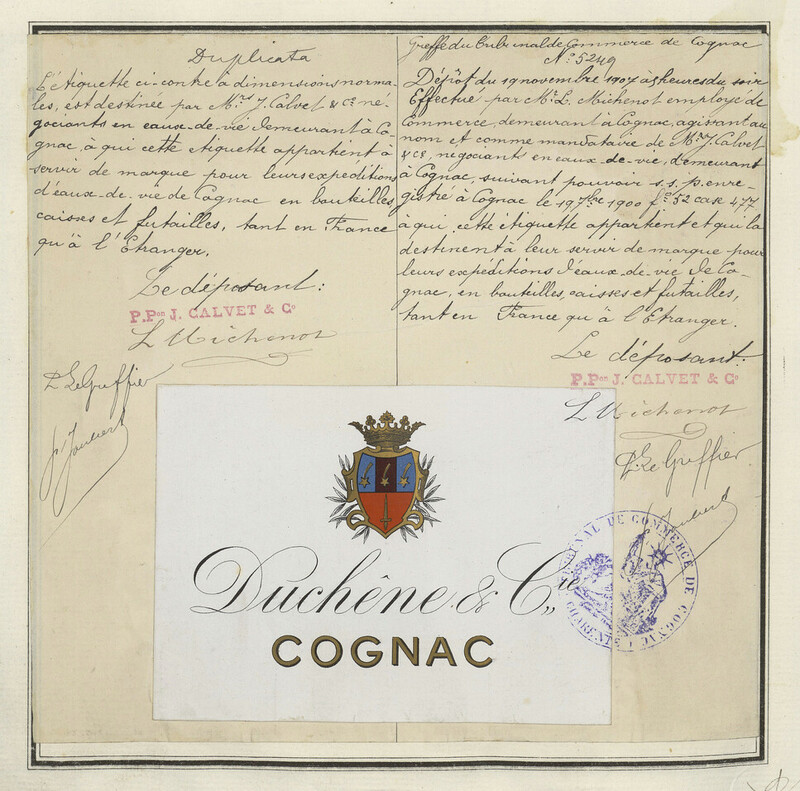 Duplicata
L'étiquette ci-contre à dimensions norma-
les, est destinée par Mrs J. Calvet & Cie né-
gociants en eaux-de-vie demeurant à Co-
gnac, à qui cette étiquette appartient à
servir de marque pour leurs expéditions
d'eaux-de-vie de Cognac en bouteilles
caisses et futailles, tant en France
qu'à l'Etranger.
Le déposant:
P.Pon J. CALVET & Co
L Michenot
P. Le Greffier
Greffe du Tribunal de Commerce de Cognac
No 5249
Dépôt du 19 novembre 1907 à 5 heures du soir
Effectué par Mr L. Michenot employé de
Commerce, demeurant à Cognac, agissant au
nom et comme mandataire de Mrs J. Calvet
& Cie, négociants en eaux-de-vie, demeurant
à Cognac, suivant pouvoir s.s.p. enre-
gistré à Cognac le 19 7bre 1900 fo 52 case 477
à qui cette étiquette appartient et qui la
destinent à leur servir de marque pour
leurs expéditions d'eaux-de-vie de Co-
gnac, en bouteilles, caisses et futailles,
tant en France qu'à l'Etranger.
Le déposant:
P.Pon J. CALVET & Co
L Michenot
P. Le Greffier
Duchêne & Cie
COGNAC
TRIBUNAL DE COMMERCE DE COGNAC
CHARENTE